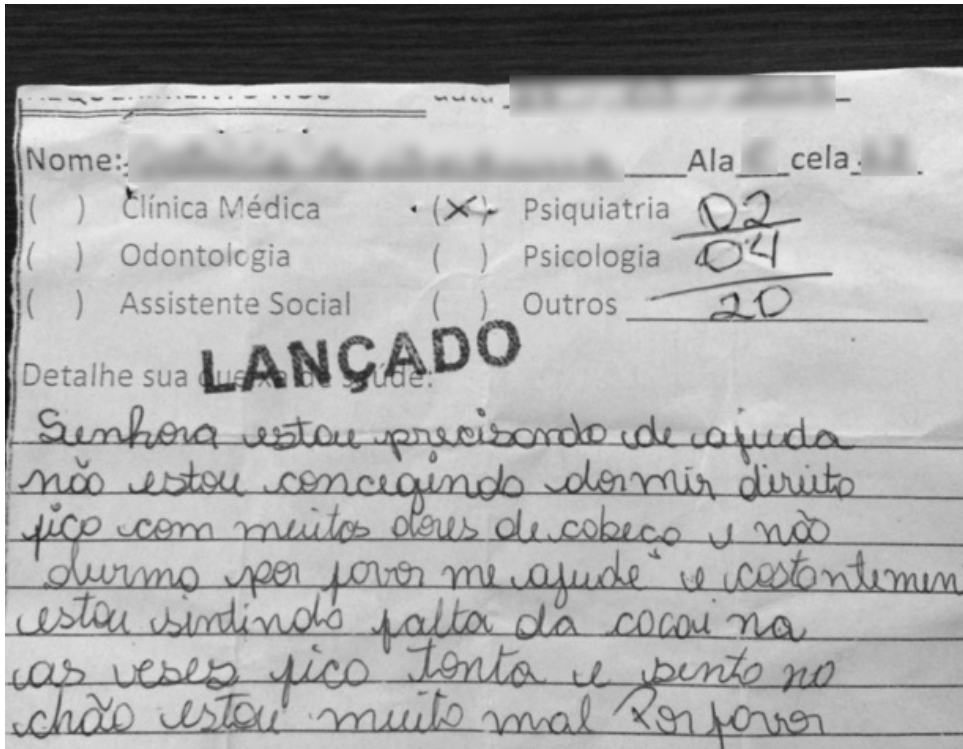 data
Nome: Ala cela
( ) Clínica Médica (X) Psiquiatria 02
( ) Odontologia ( ) Psicologia 04
( ) Assistente Social ( ) Outros 20
LANÇADO
Detalhe sua queixa de saúde:
Senhora estou precisando de ajuda
não estou concegindo dormir direito
fico com muitos dores de cabeça e não
durmo por favor me ajude e costantemen
estou sintindo falta da cocaina
as veses fico tonta e sento no
chão estou muito mal Por favor